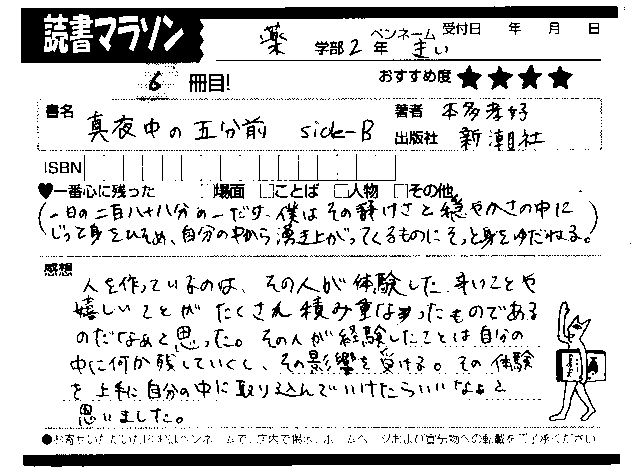 読書マラソン
薬 学部 2 年 ペンネーム まい 受付日 年 月 日
6 冊目! おすすめ度 ★★★★
書名 真夜中の五分前 side-B
著者 本多孝好
出版社 新潮社
ISBN
♥一番心に残った □場面 □ことば □人物 □その他
(一日の二百八十八分の一だけ、僕はその静けさと穏やかさの中に
じっと身をひそめ、自分の中から湧き上がってくるものにそっと身をゆだねる。)
感想
人を作っているのは、その人が体験した辛いことや
嬉しいことがたくさん積み重なったものである
のだなぁと思った。その人が経験したことは自分の
中に何か残していくし、その影響を受ける。その体験
を上手に自分の中に取り込んでいけたらいいなぁと
思いました。
●お寄せいただいたPOPはペンネームで、店内で掲示、ホームページおよび宣伝物への転載をご了承ください